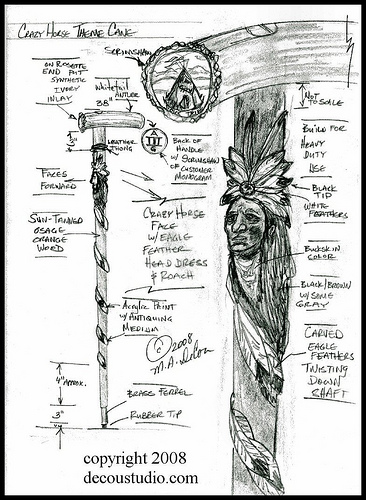 CRAZY HORSE THEME CANE
SCRIMSHAW
ON ROSETTE
END PUT
SYNTHETIC
IVORY
INLAY
Whitetail
ANTLER
38"
3"
LEATHER
THONG
BACK OF
HANDLE
w/ SCRIMSHAW
OF CUSTOMER
MONOGRAM
NOT
TO SCALE
BUILD FOR
HEAVY
DUTY
USE
FACES
FORWARD
BLACK
TIP
WHITE
FEATHERS
SUN-TANNED
OSAGE
ORANGE
WOOD
CRAZY HORSE
FACE
w/ EAGLE
FEATHER
HEAD DRESS
& ROACH
BUCKSKIN
COLOR
BLACK/BROWN
w/ SOME
GRAY
ACRYLIC PAINT
w/ ANTIQUING
MEDIUM
CARVED
EAGLE
FEATHERS
TWISTING
DOWN
SHAFT
© 2008
4" APPROX.
3"
BRASS FERREL
RUBBER TIP
copyright 2008
decoustudio.com